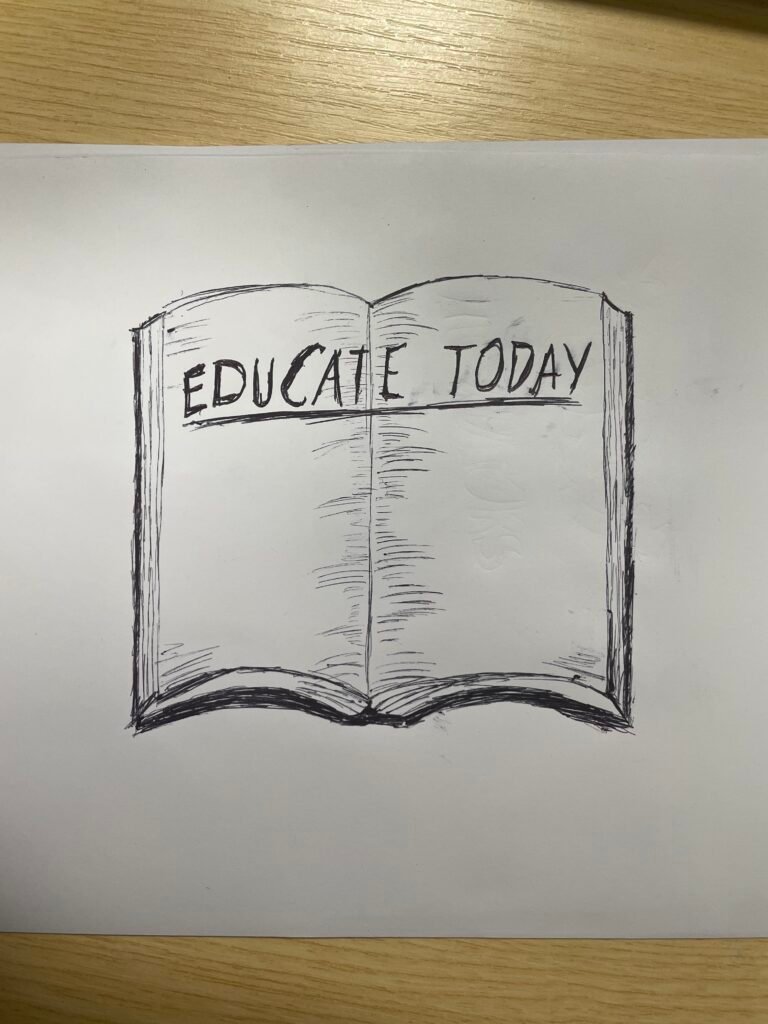 EDUCATE TODAY